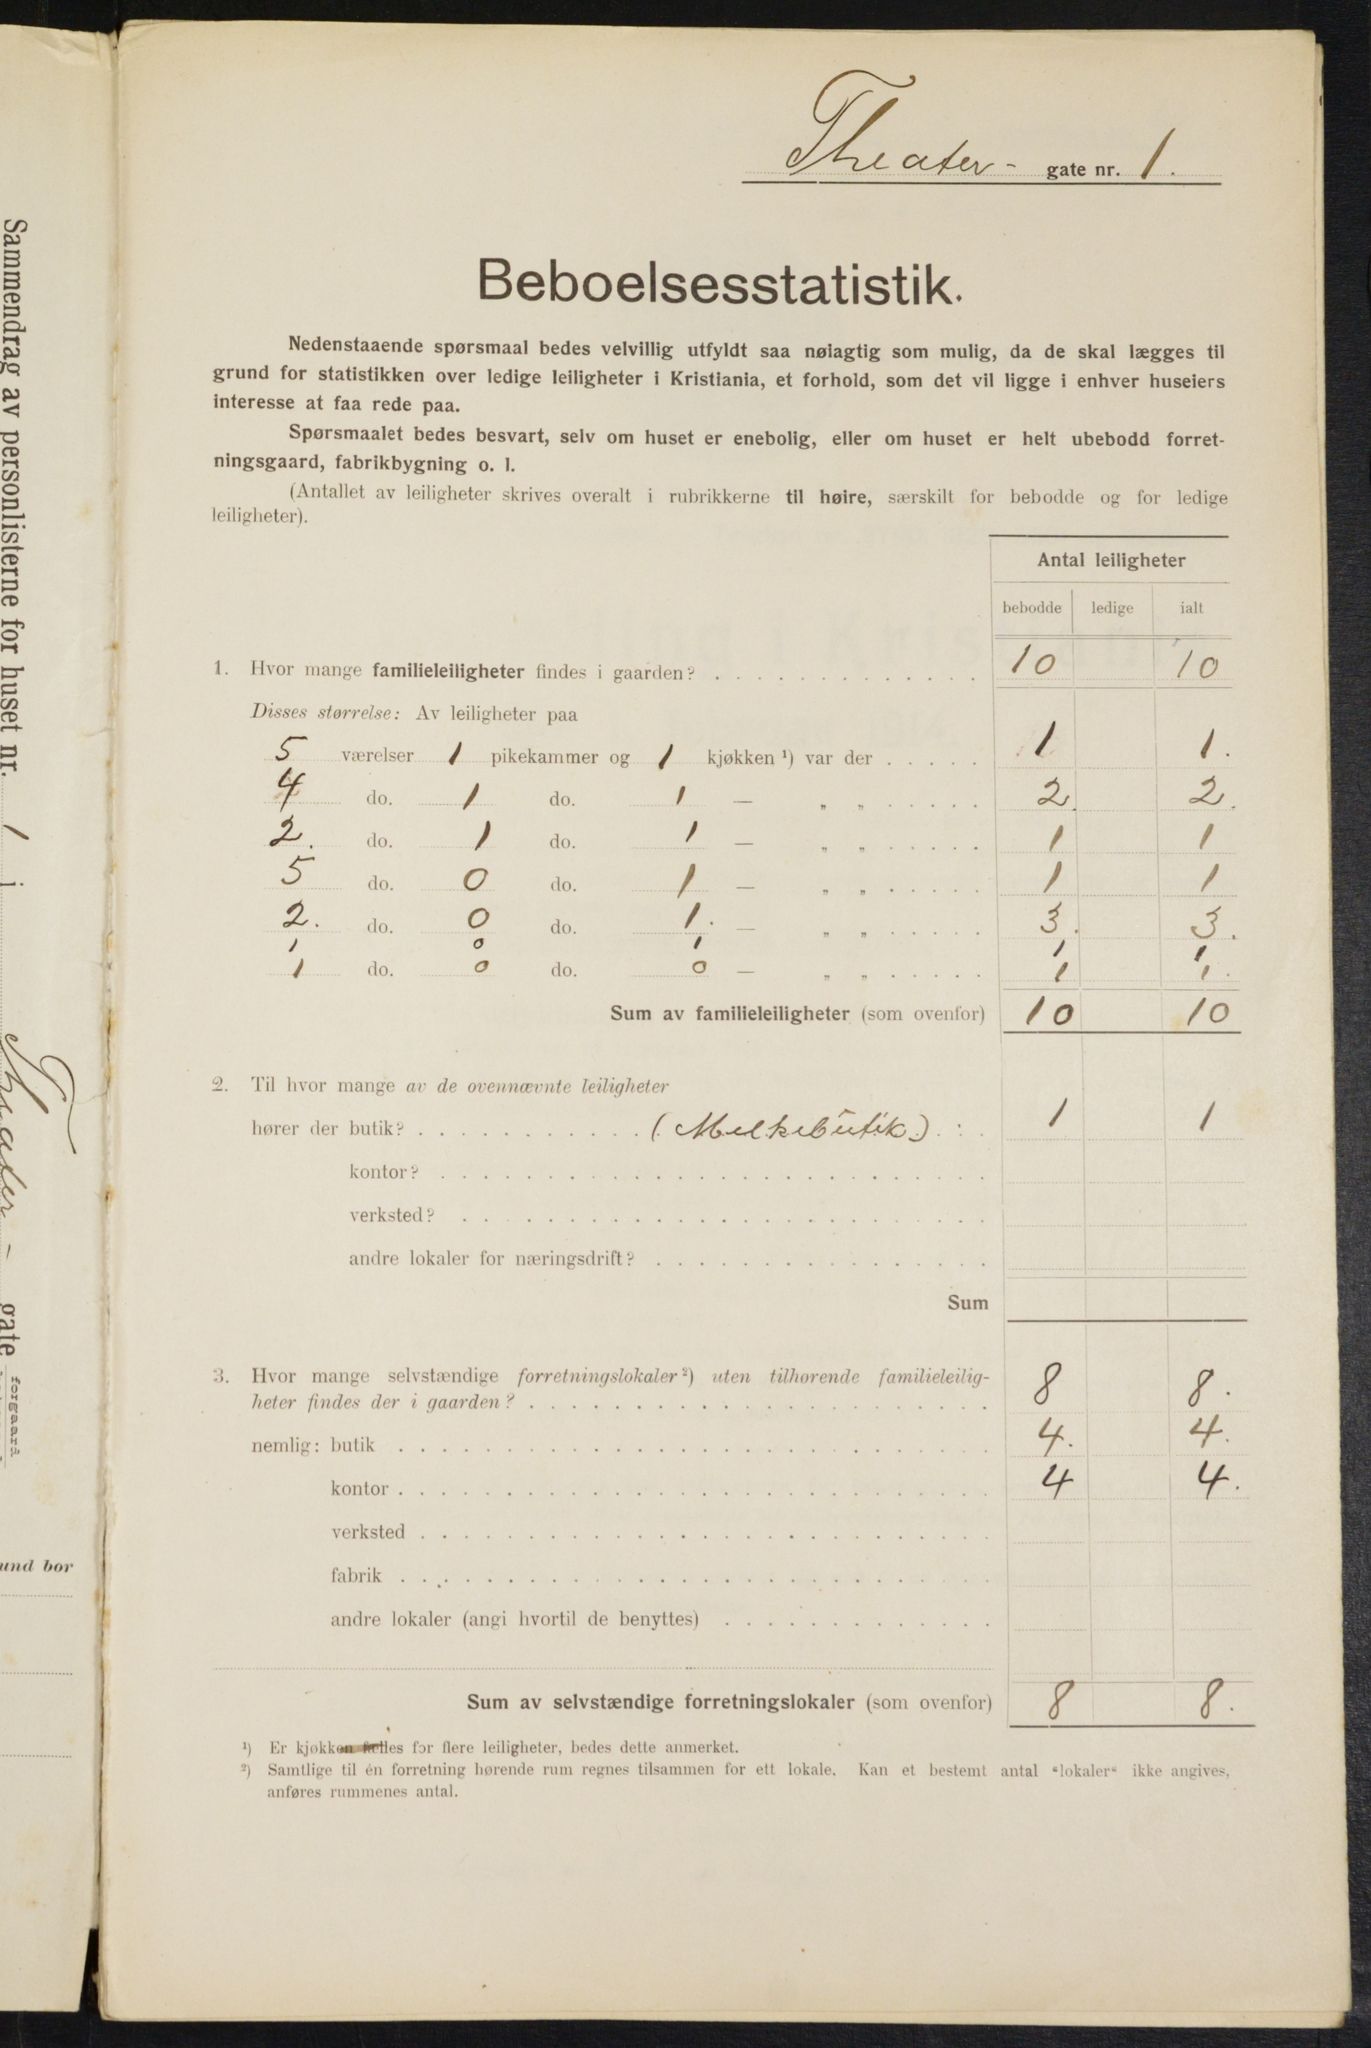 Theater- gate nr. 1.
Beboelsesstatistik.
Nedenstaaende spørsmaal bedes velvillig utfyldt saa nøiagtig som mulig, da de skal lægges til
grund for statistikken over ledige leiligheter i Kristiania, et forhold, som det vil ligge i enhver huseiers
interesse at faa rede paa.
Spørsmaalet bedes besvart, selv om huset er enebolig, eller om huset er helt ubebodd forret-
ningsgaard, fabrikbygning o. l.
(Antallet av leiligheter skrives overalt i rubrikkerne til høire, særskilt for bebodde og for ledige
leiligheter).
Antal leiligheter
bebodde ledige ialt
1. Hvor mange familieleiligheter findes i gaarden? . . . . . . . . . . . . . 10 10
Disses størrelse: Av leiligheter paa
5 værelser 1 pikekammer og 1 kjøkken ¹) var der . . . . . 1 1.
4 do. 1 do. 1 — „ „ . . . . . . 2. 2.
2. do. 1 do. 1 — „ „ . . . . . . 1 1
5 do. 0 do. 1 — „ „ . . . . . . 1 1
2. do. 0 do. 1. — „ „ . . . . . . 3. 3.
1 0 1 1 1
1 do. 0 do. 0 — „ „ . . . . . . 1 1.
Sum av familieleiligheter (som ovenfor) 10 10
2. Til hvor mange av de ovennævnte leiligheter
hører der butik? . . . . . . . . . . . (Melkebutik) . : . 1 1
kontor? . . . . . . . . . . . . . . . . . . . . . . . . . .
verksted? . . . . . . . . . . . . . . . . . . . . . . . . .
andre lokaler for næringsdrift? . . . . . . . . . . . . . . . .
Sum
3. Hvor mange selvstændige forretningslokaler ²) uten tilhørende familieleilig-
heter findes der i gaarden? . . . . . . . . . . . . . . . . . . . . . . 8 8.
nemlig: butik . . . . . . . . . . . . . . . . . . . . . . . . . . . . 4. 4.
kontor . . . . . . . . . . . . . . . . . . . . . . . . . . . . 4 4.
verksted . . . . . . . . . . . . . . . . . . . . . . . . . . .
fabrik . . . . . . . . . . . . . . . . . . . . . . . . . . . .
andre lokaler (angi hvortil de benyttes) . . . . . . . . . . . . .
Sum av selvstændige forretningslokaler (som ovenfor) 8 8.
¹) Er kjøkken fælles for flere leiligheter, bedes dette anmerket.
²) Samtlige til én forretning hørende rum regnes tilsammen for ett lokale. Kan et bestemt antal “lokaler“ ikke angives,
anføres rummenes antal.
Sammendrag av personlisterne for huset nr. 1 i Theater- gate
forgaard
und bor